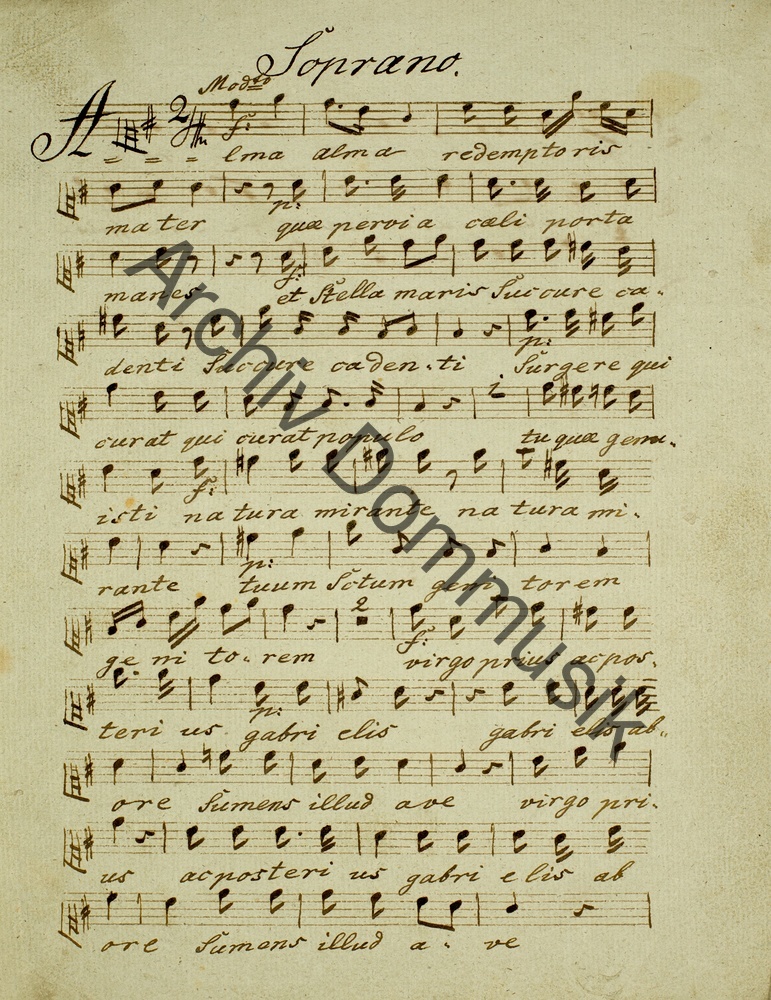 Soprano.
Mod.to
A = = = lma alma redemptoris
f:
mater quæ pervia cœli porta
p:
manes et Stella maris Succure ca-
f:
denti Succure caden-ti Surgere qui
p:
curat qui curat populo tu quæ genu-
isti natura mirante natura mi-
f:
rante tuum Sctum geni torem
p:
2
ge ni to-rem virgo prius ac pos-
f:
teri us gabri elis gabri elis ab-
p:
ore Sumens illud ave virgo pri-
us ac posteri us gabri e lis ab
ore Sumens illud a - ve
Archiv Dommusik